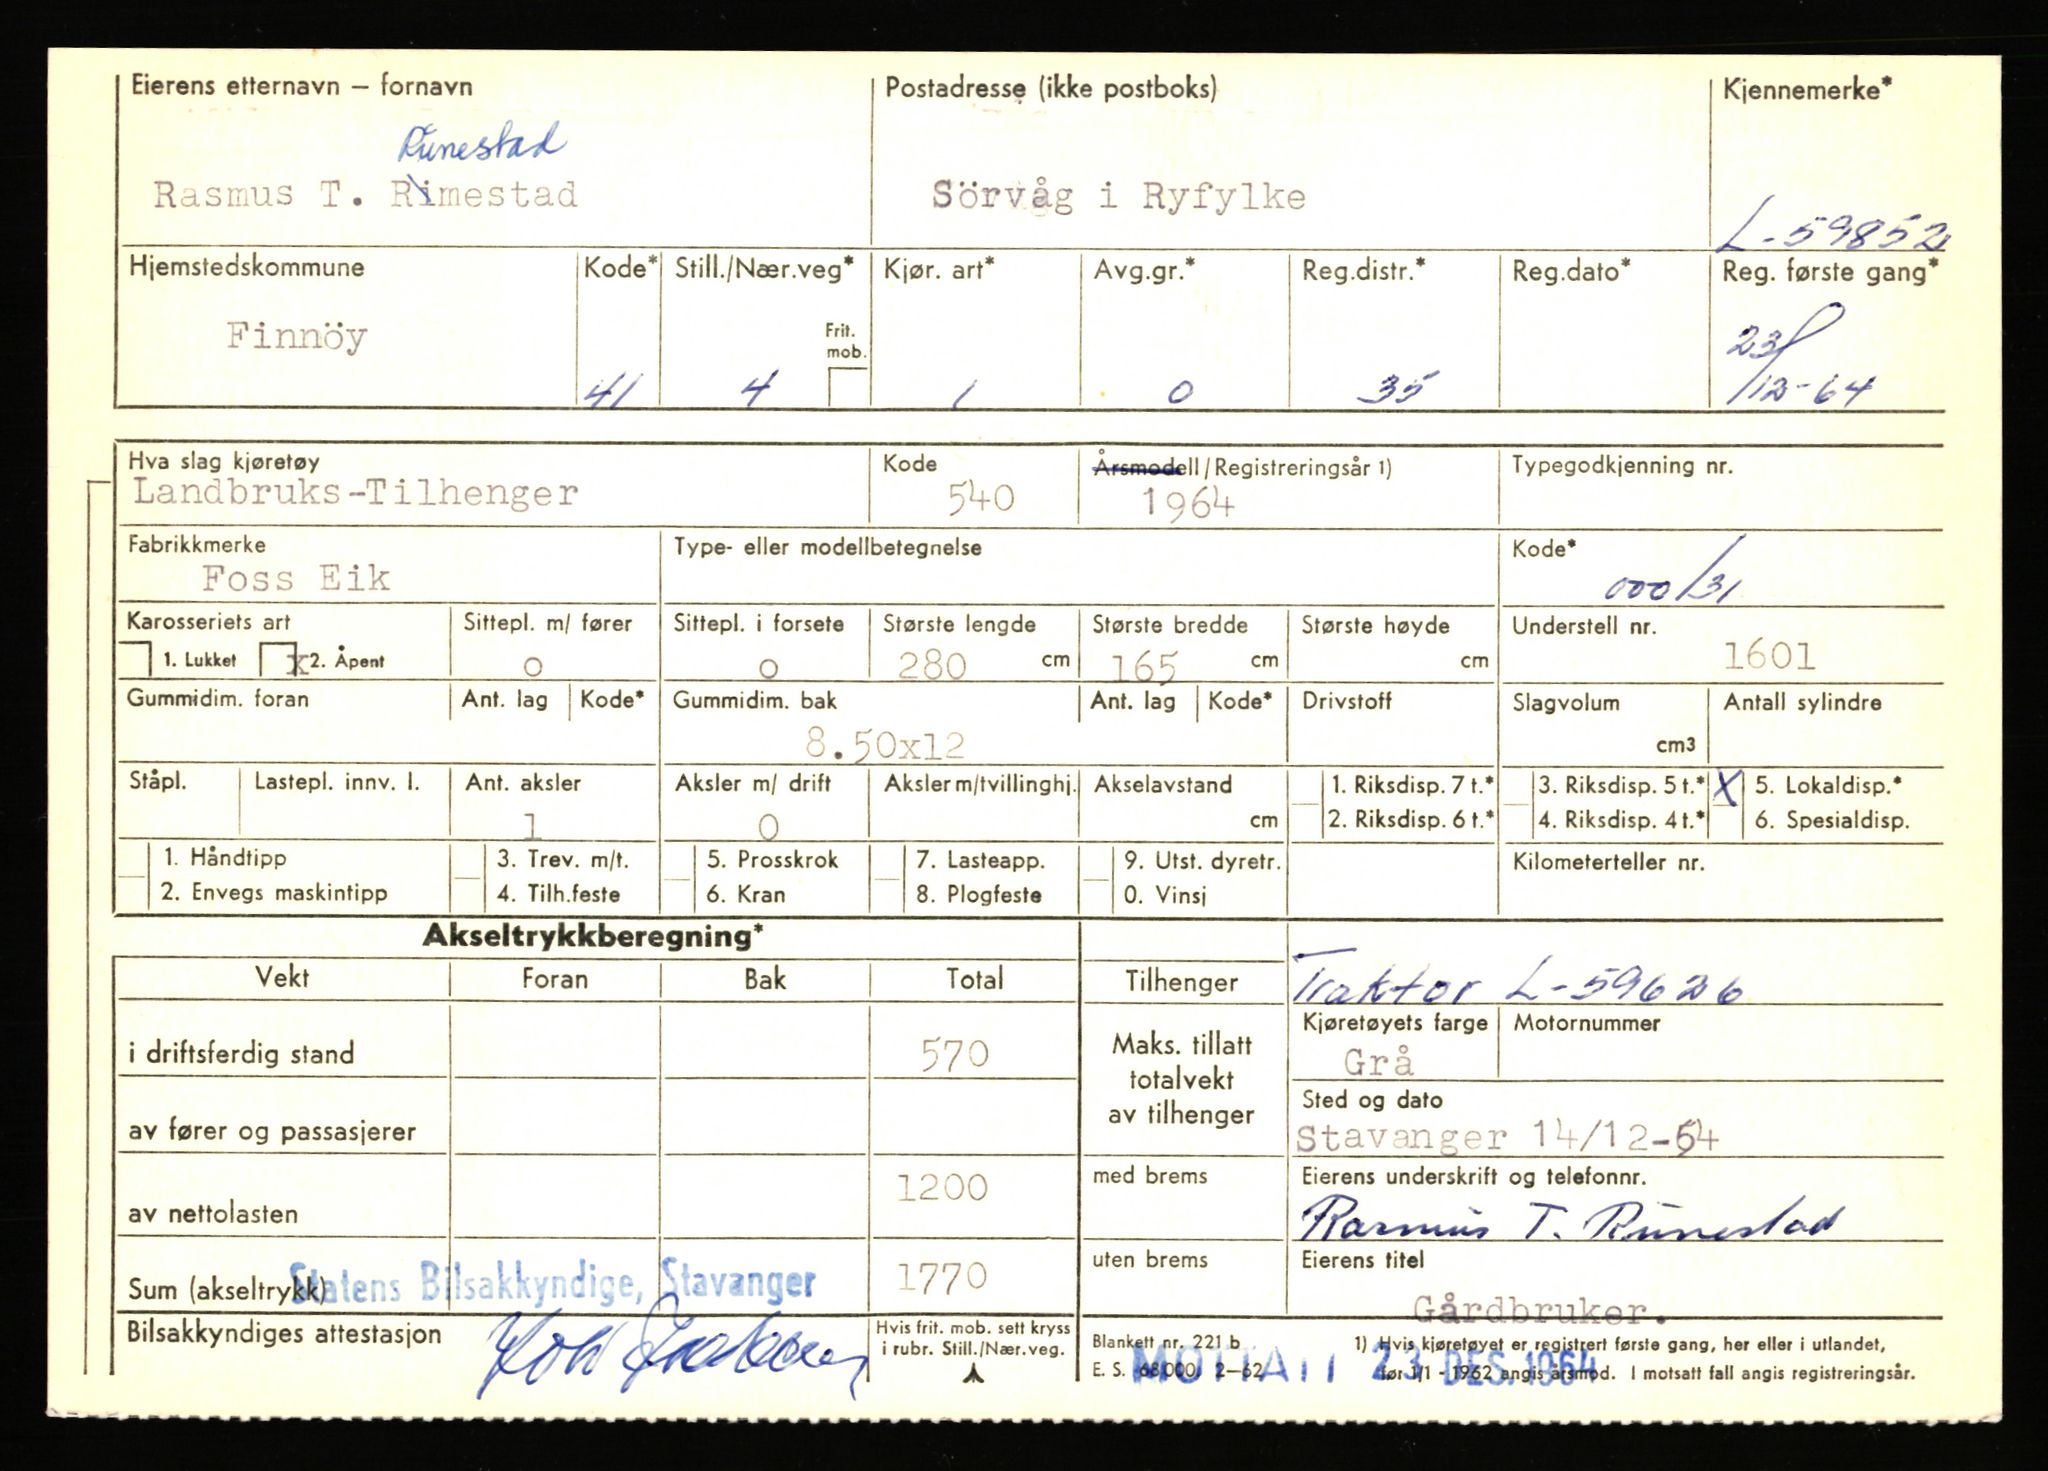 Eierens etternavn – fornavn
Postadresse (ikke postboks)
Kjennemerke*
Runestad
Rasmus T. Rimestad
Sörvåg i Ryfylke
L-59852
Hjemstedskommune
Kode*
Still./Nær.veg*
Kjør. art*
Avg.gr.*
Reg.distr.*
Reg.dato*
Reg. første gang*
Finnöy
Frit. mob.
41
4
1
0
35
23/12-64
Hva slag kjøretøy
Kode
Årsmodell/Registreringsår 1)
Typegodkjenning nr.
Landbruks-Tilhenger
540
1964
Fabrikkmerke
Type- eller modellbetegnelse
Kode*
Foss Eik
000/31
Karosseriets art
Sittepl. m/ fører
Sittepl. i forsete
Største lengde
Største bredde
Største høyde
Understell nr.
1. Lukket
x 2. Åpent
0
0
280 cm
165 cm
cm
1601
Gummidim. foran
Ant. lag
Kode*
Gummidim. bak
Ant. lag
Kode*
Drivstoff
Slagvolum
Antall sylindre
8.50x12
cm3
Ståpl.
Lastepl. innv. l.
Ant. aksler
Aksler m/ drift
Aksler m/tvillinghj.
Akselavstand
1. Riksdisp. 7 t.*
3. Riksdisp. 5 t.*
X 5. Lokaldisp.*
1
0
cm
2. Riksdisp. 6 t.*
4. Riksdisp. 4 t.*
6. Spesialdisp.
1. Håndtipp
3. Trev. m/t.
5. Prosskrok
7. Lasteapp.
9. Utst. dyretr.
Kilometerteller nr.
2. Envegs maskintipp
4. Tilh.feste
6. Kran
8. Plogfeste
0. Vinsj
Akseltrykkberegning*
Vekt
Foran
Bak
Total
Tilhenger
Traktor L-59626
i driftsferdig stand
570
Maks. tillatt
totalvekt
av tilhenger
Kjøretøyets farge
Motornummer
Grå
Sted og dato
av fører og passasjerer
Stavanger 14/12-64
av nettolasten
1200
med brems
Eierens underskrift og telefonnr.
Rasmus T. Runestad
Sum (akseltrykk)
Statens Bilsakkyndige, Stavanger
1770
uten brems
Eierens titel
Gårdbruker.
Bilsakkyndiges attestasjon
Hvis frit. mob. sett kryss
i rubr. Still./Nær.veg.
Blankett nr. 221 b
E. S. 68.000. 2–62
MOTTATT 23 DES. 1964
1) Hvis kjøretøyet er registrert første gang, her eller i utlandet,
før 1/1 - 1962 angis årsmod. I motsatt fall angis registreringsår.